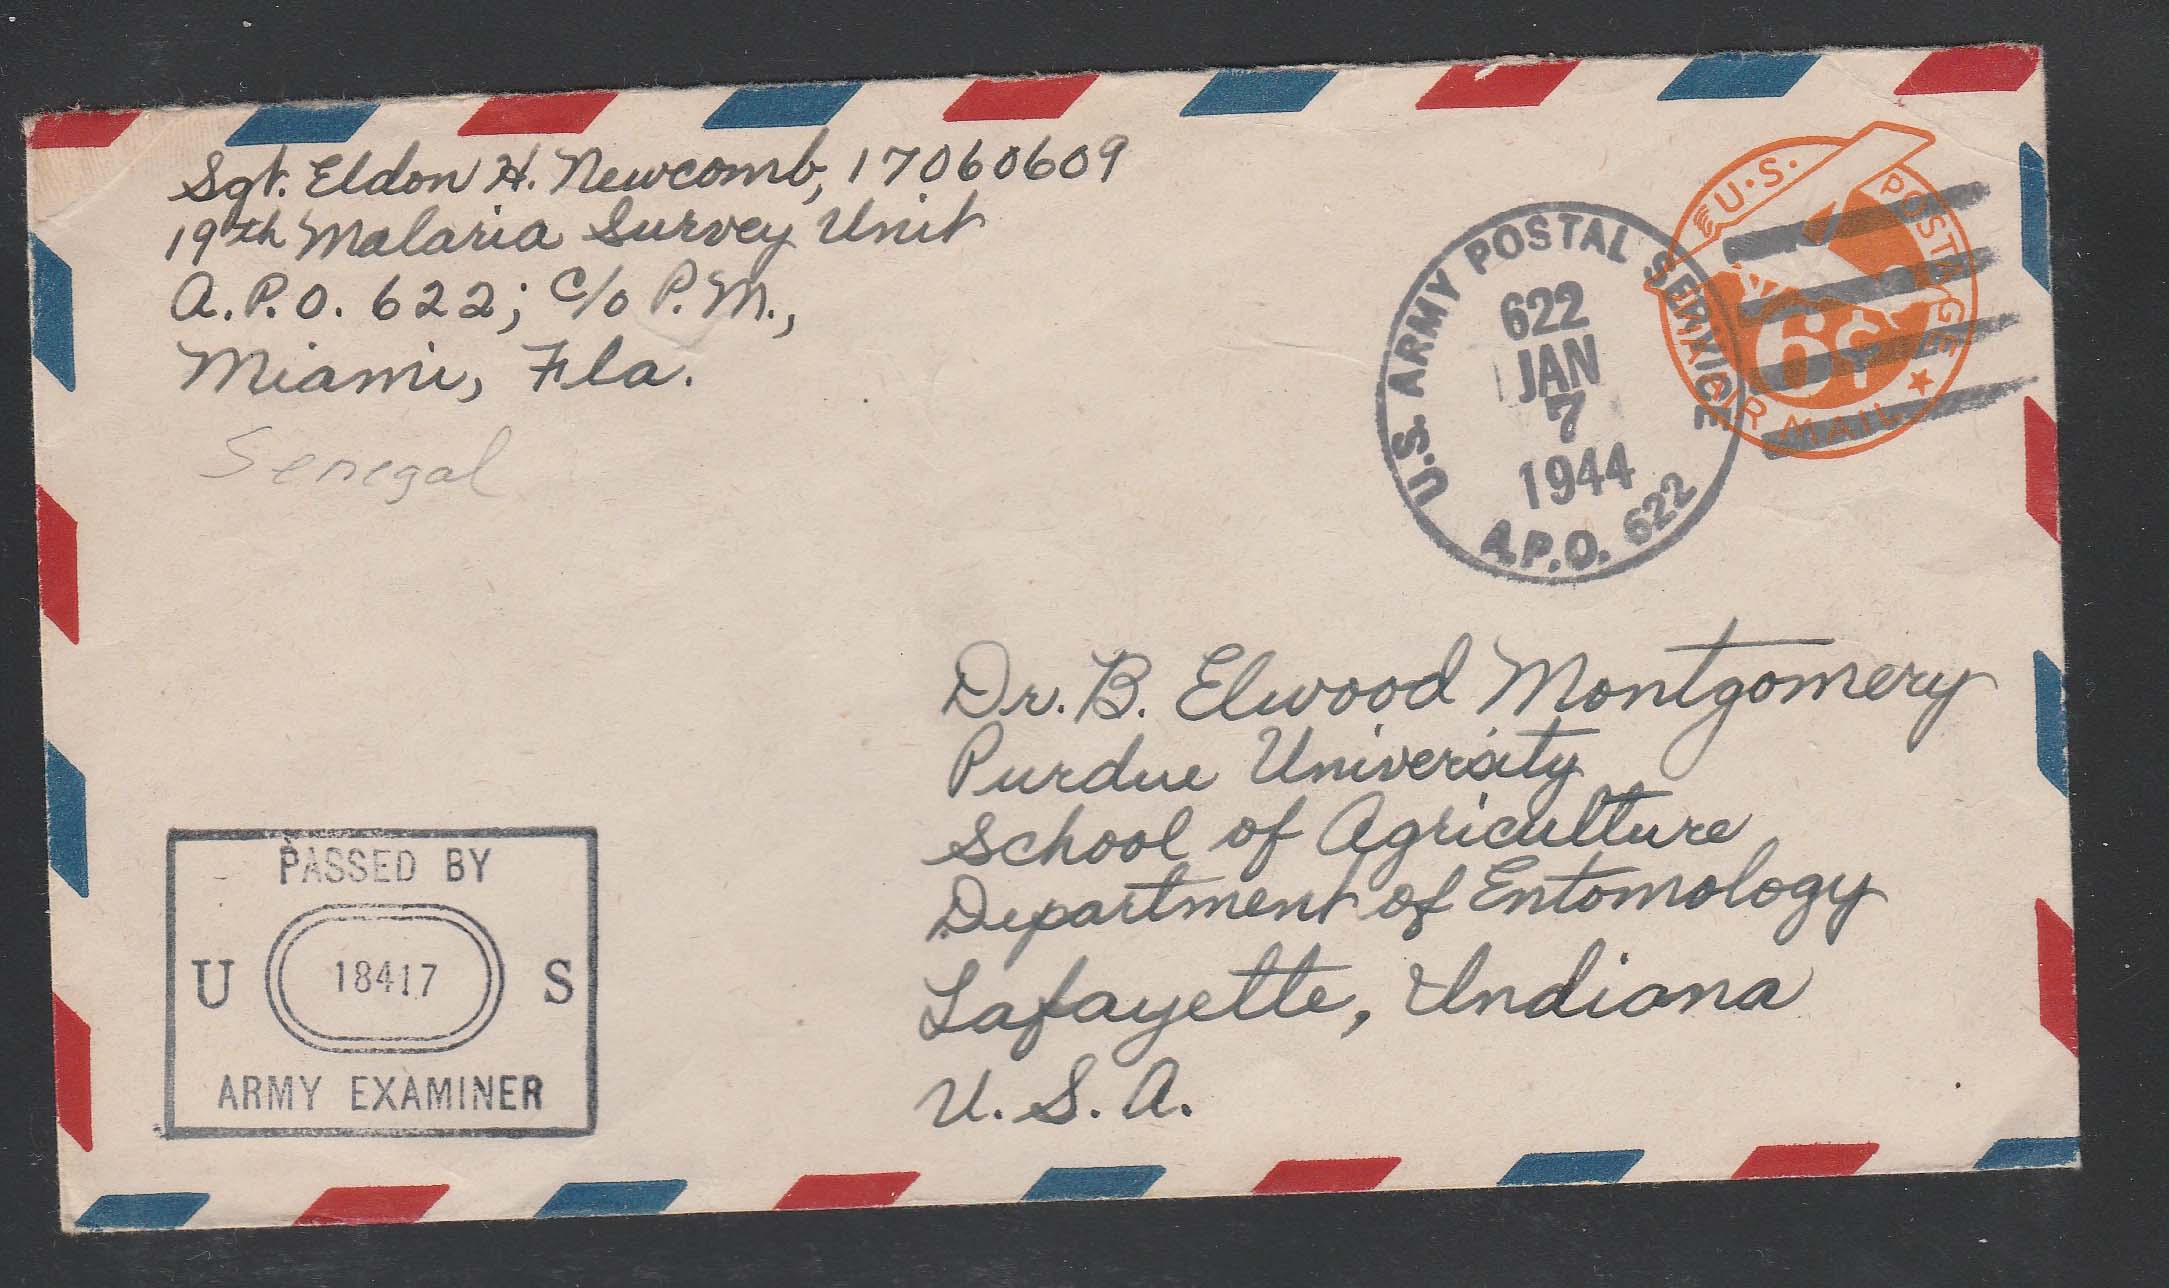 Sgt. Eldon H. Newcomb, 17060609
19th Malaria Survey Unit
A.P.O. 622; c/o P.M.,
Miami, Fla.
Senegal
U.S. ARMY POSTAL SERVICE
622
JAN
7
1944
A.P.O. 622
U.S. POSTAGE
6¢
VIA AIR MAIL
Dr. B. Elwood Montgomery
Purdue University
School of Agriculture
Department of Entomology
Lafayette, Indiana
U.S.A.
PASSED BY
U 18417 S
ARMY EXAMINER